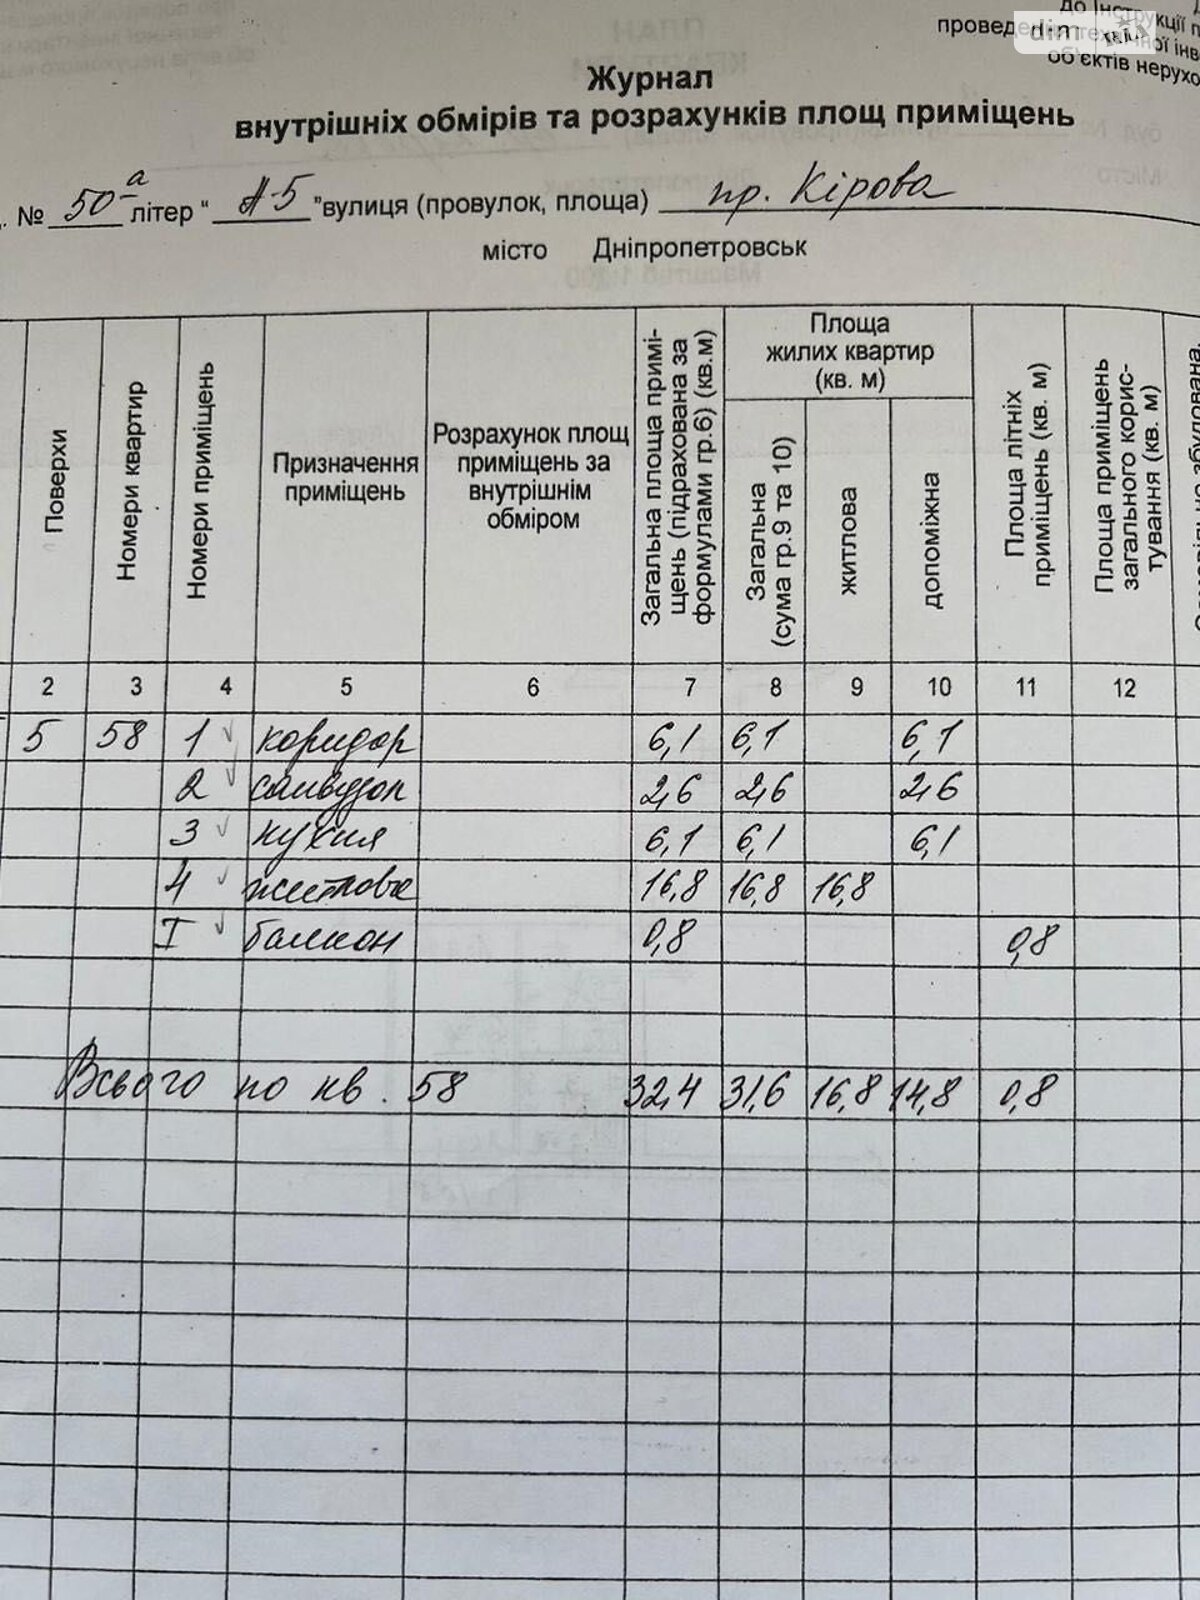 до Інструкції п
проведе технічної інв
об'єктів нерухо
dim ria
Журнал
внутрішніх обмірів та розрахунків площ приміщень
. № 50а літер “ А-5 ” вулиця (провулок, площа) пр. Кірова
місто Дніпропетровськ
Поверхи
Номери квартир
Номери приміщень
Призначення приміщень
Розрахунок площ приміщень за внутрішнім обміром
Загальна площа приміщень (підрахована за формулами гр.6) (кв.м)
Площа жилих квартир (кв. м)
Загальна (сума гр.9 та 10)
житлова
допоміжна
Площа літніх приміщень (кв. м)
Площа приміщень загального користування (кв. м)
2 3 4 5 6 7 8 9 10 11 12
5 58 1 коридор 6,1 6,1 6,1
2 санвузол 2,6 2,6 2,6
3 кухня 6,1 6,1 6,1
4 житлова 16,8 16,8 16,8
I балкон 0,8 0,8
Всього по кв. 58 32,4 31,6 16,8 14,8 0,8